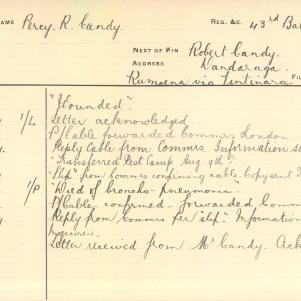 NAME Percy. R. Candy. REG. &C. 43rd Bat
NEXT OF KIN Robert Candy.
ADDRESS Wandaraga.
Kumorna via Tintinara. FI
"Wounded".
1/L Letter acknowledged.
P/Cable forwarded Commrs London.
Reply Cable from Commrs. Information s
"Transferred Post Camp Aug 9th".
from Commrs confirming cable. Copy sent
1/P "Died of broncho-pneumonia.
P/Cable confirmed - forwarded Comm
Reply from Commrs per slip. Information
Inquirer.
Letter received from Mr Candy. Ack